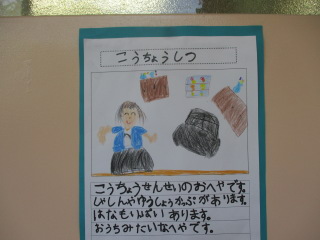 こうちょうしつ
こうちょうせんせいのおへやです。
しゃしんやゆうしょうカップがあります。
はなもいっぱい あります。
おうちみたいなへやです。